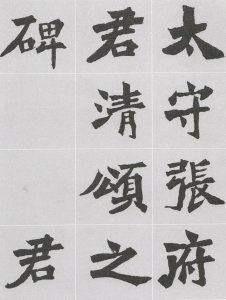 太守張府
君清頌之
碑君